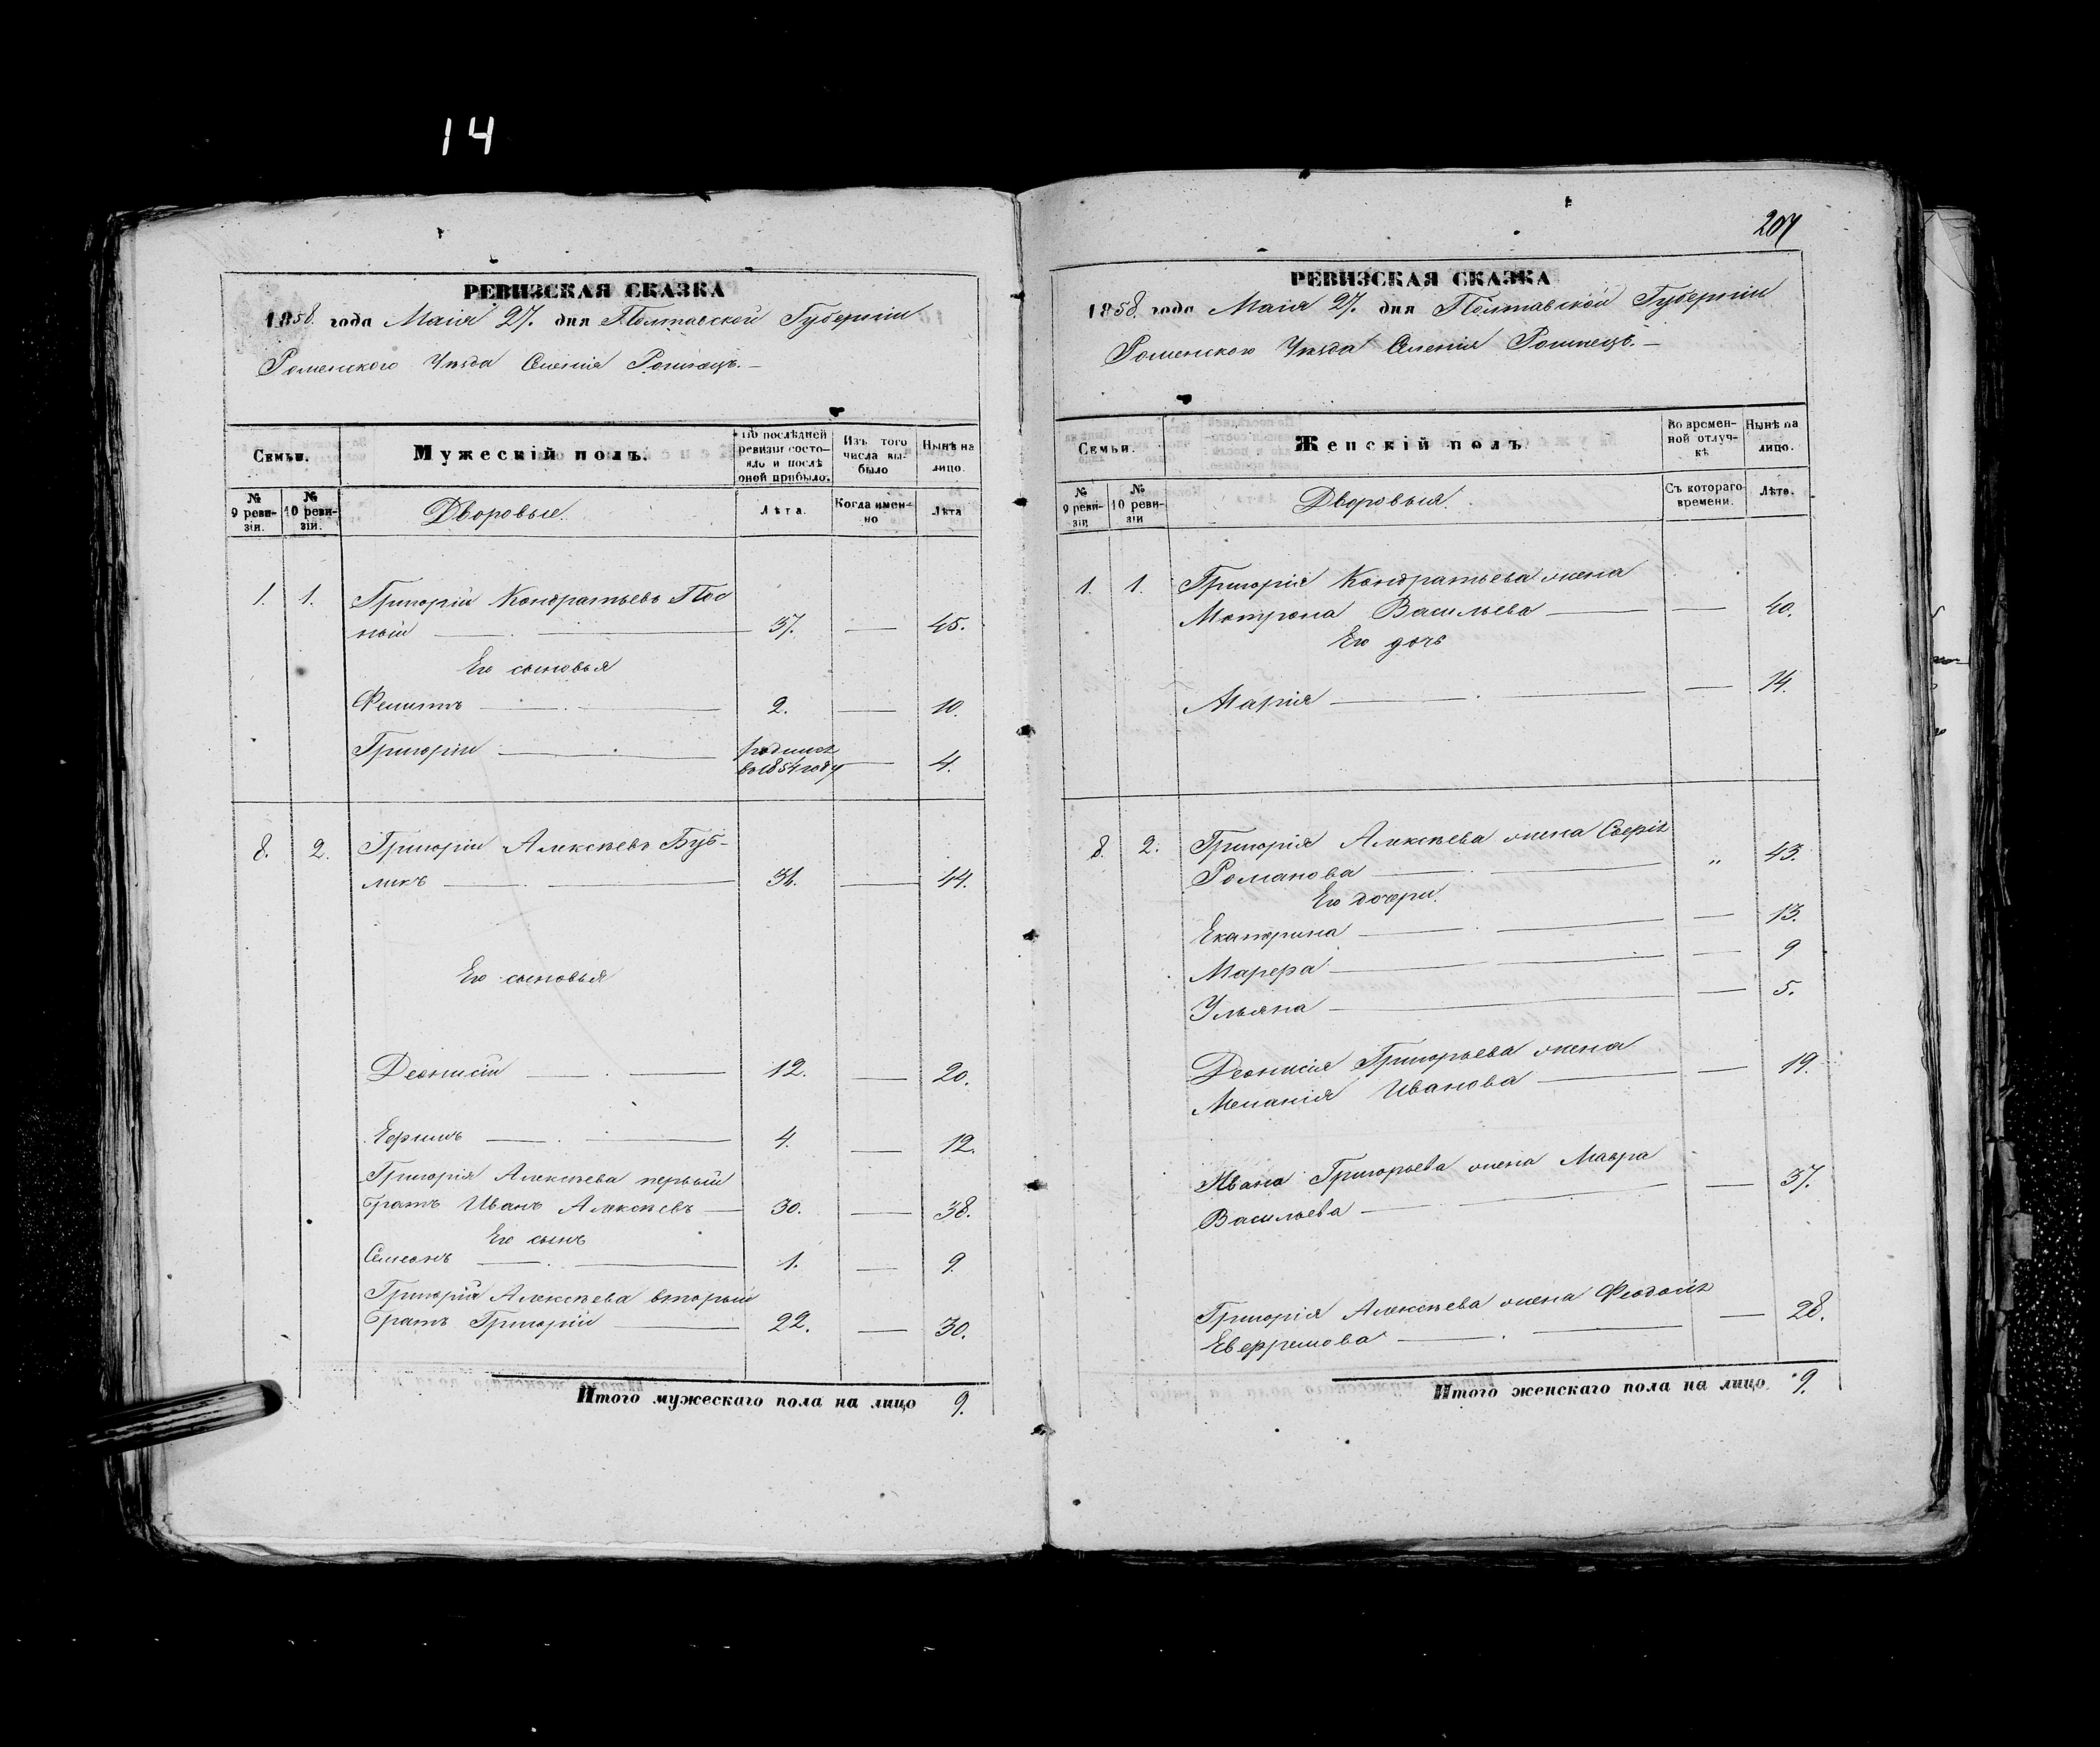 14
204
РЕВИЗСКАЯ СКАЗКА
1858. года Маія 27. дня Полтавской Губерніи
Роменского Уѣзда Селенія
Семьи.
Мужескій полъ.
По послѣдней ревизіи состояло и послѣ оной прибыло.
Изъ того числа выбыло
Нынѣ на лицо.
№ 9 ревизіи.
№ 10 ревизіи.
Дворовые.
Лѣта.
Когда именно
Лѣта
1. 1. Григорій Кондратьевъ Пос
ный 37. — 45.
Его сыновья
Филиппъ 2. — 10.
Григорій родился
въ 1854 году — 4.
8. 2. Григорій Алексѣевъ Буб-
ликъ 36. — 44.
Его сыновья
Деонисій 12. — 20.
Ефимъ 4. — 12.
Григорія Алексѣева первый
братъ Иванъ Алексѣевъ — 30. — 38.
Его сынъ
Семенъ 1. — 9.
Григорія Алексѣева вторый
братъ Григорій 22. — 30.
Итого мужескаго пола на лицо 9.
РЕВИЗСКАЯ СКАЗКА
1858. года Маія 27. дня Полтавской Губерніи
Роменского Уѣзда Селенія
Семьи.
Женскій полъ.
Во временной отлучкѣ
Нынѣ на лицо.
№ 9 ревизіи
№ 10 ревизіи
Дворовыя.
Съ котораго времени.
Лѣта.
1. 1. Григорія Кондратьева жена
Мотрона Васильева — 40.
Его дочь
Марія — 14.
8. 2. Григорія Алексѣева жена Софія
Романова „ 43.
Его дочери.
Екатерина — 13.
Марфа — 9
Ульяна — 5.
Деонисія Григорьева жена
Меланія Иванова — 19.
Ивана Григорьева жена Мавра
Васильева — 37.
Григорія Алексѣева жена Феодосія
Евфремова — 28.
Итого женскаго пола на лицо 9.